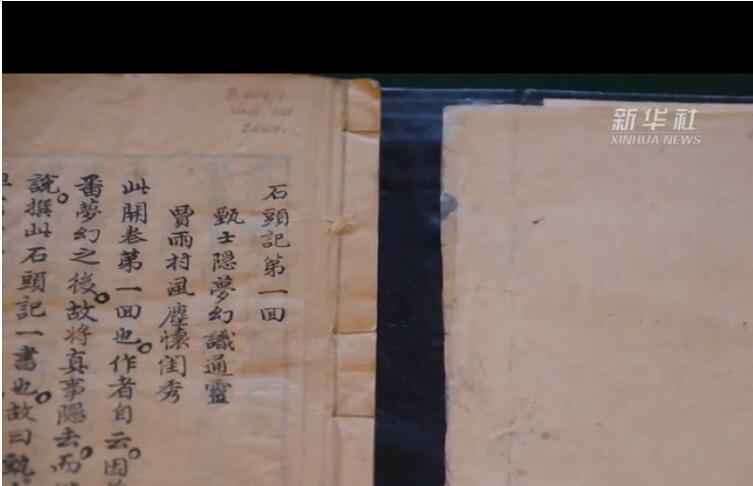 石頭記第一回
甄士隱夢幻識通靈
賈雨村風塵懷閨秀
此開卷第一回也。作者自云。因
番夢幻之後。故將真事隱去。而
說。撰此石頭記一書也。故曰甄
新华社
XINHUA NEWS